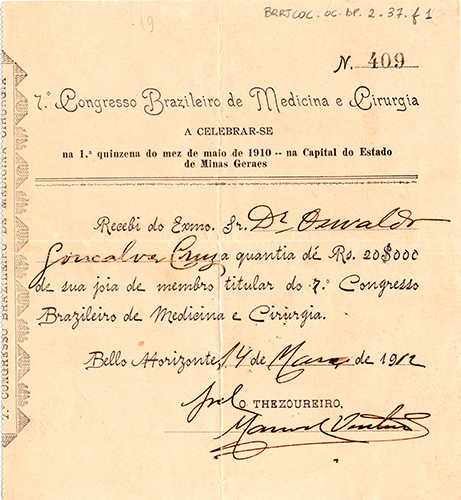 19
BRRJCOC.OC.DP.2.37.f1
N. 409
7.º Congresso Brazileiro de Medicina e Cirurgia
A CELEBRAR-SE
na 1.ª quinzena do mez de maio de 1910 -- na Capital do Estado
de Minas Geraes
Recebi do Exmo. Sr. Dr Oswaldo
Goncalves Cruz, a quantia dé Rs. 20$000
de sua joia de membro titular do 7.º Congresso
Brazileiro de Medicina e Cirurgia.
Bello Horizonte, 14 de de 1912
pel O THEZOUREIRO,
Manoel
7.º CONGRESSO BRAZILEIRO DE MEDICINA CIRURGIA